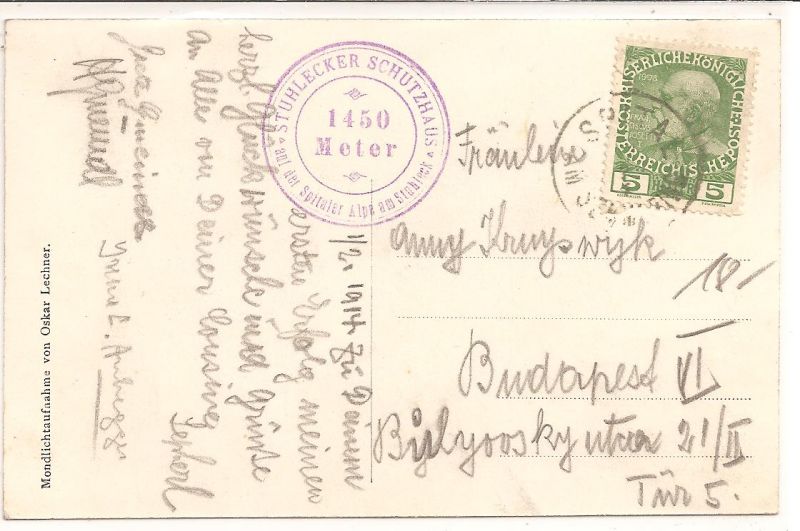 Mondlichtaufnahme von Oskar Lechner.
STUHLECKER SCHUTZHAUS
1450
Meter
auf der Spitaler Alpe am Stuhleck
KAISERLICHE KÖNIGLICHE
ÖSTERREICHISCHE POST
1908
5 5
Fräulein
Anny Kruyswyk
18-
Budapest VI
Bulyovsky utca 21/II
Tür 5.
1/2. 1914. Zu Deinem
ersten Erfolg meinen
herzl. Glückwünsche und Grüsse
an Alle von Deiner Cousine